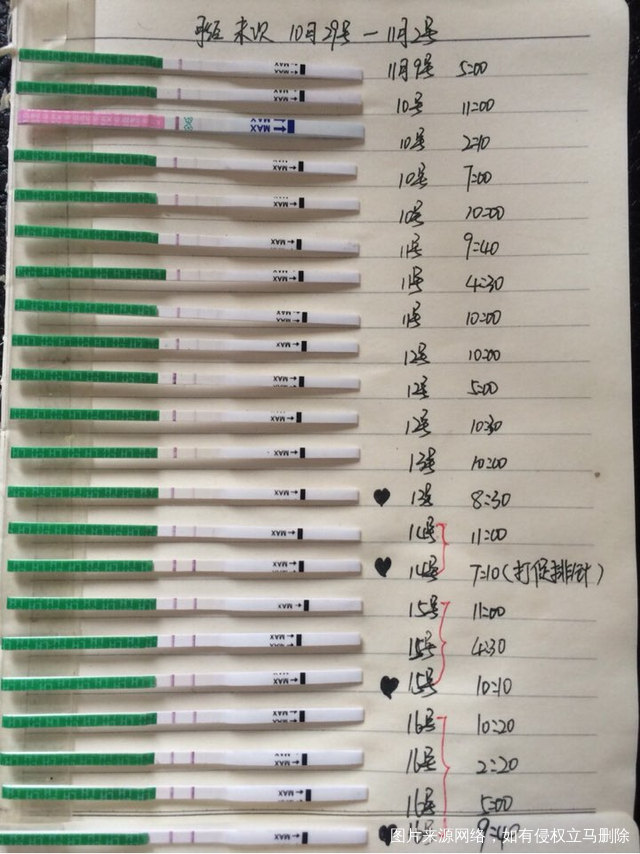 月经 末次 10月29号 — 11月2号
MAX 11月9号 5:00
MAX 10号 11:00
MAX 10号 2:10
MAX 10号 7:00
MAX 10号 10:00
MAX 11号 9:40
MAX 11号 4:30
MAX 11号 10:00
MAX 12号 10:00
MAX 12号 5:00
MAX 12号 10:30
MAX 13号 10:00
MAX 13号 8:30
MAX 14号 11:00
MAX 14号 7:10(打促排针)
MAX 15号 11:00
MAX 15号 4:30
MAX 15号 10:10
MAX 16号 10:20
MAX 16号 2:20
MAX 16号 5:00
MAX 9:40
图片来源网络，如有侵权立马删除